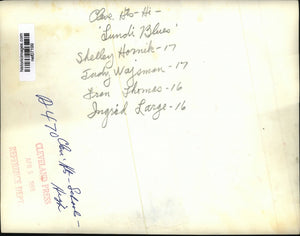 Cleve. Hts-Hi-
'Lundi Blues'
Shelley Hornik-17
Judy Wajsman-17
Fran Thomes-16
Ingrid Large-16
D-470 Clev. Hts-Schools-
High
CLEVELAND PRESS
REFERENCE DEPT